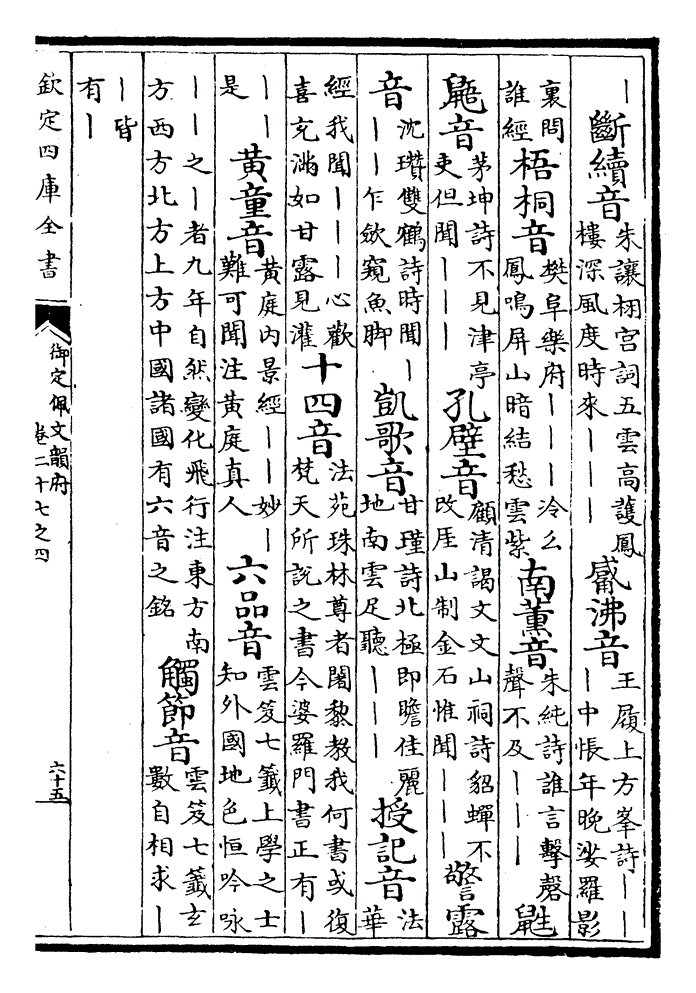 ｜斷續音朱讓栩宮詞五雲高護鳳樓深風度時來｜｜｜觱沸音王履上方峯詩｜｜｜中悵年晚娑羅影
裏問誰經梧桐音樊阜樂府｜｜｜冷么鳳鳴屏山暗結愁雲紫南薰音朱純詩誰言擊磬聲不及｜｜｜鼪
鼯音茅坤詩不見津亭吏但聞｜｜｜孔壁音顧清謁文文山祠詩貂蟬不改厓山制金石惟聞｜｜｜警露
音沈瓚雙鶴詩時聞｜｜｜乍斂窺魚脚凱歌音甘瑾詩北極即瞻佳麗地南雲足聽｜｜｜授記音法華
經我聞｜｜｜心歡喜充滿如甘露見灌十四音法苑珠林尊者闍黎教我何書或復梵天所説之書今婆羅門書正有｜
｜｜是黄童音黄庭内景經｜｜｜妙｜難可聞注黄庭真人六品音雲笈七籤上學之士知外國地色恒吟咏
｜｜之｜者九年自然變化飛行注東方南方西方北方上方中國諸國有六音之銘觸節音雲笈七籤玄數自相求｜
｜皆有｜
欽定四庫全書
御定佩文韻府
卷二十七之四
六十五